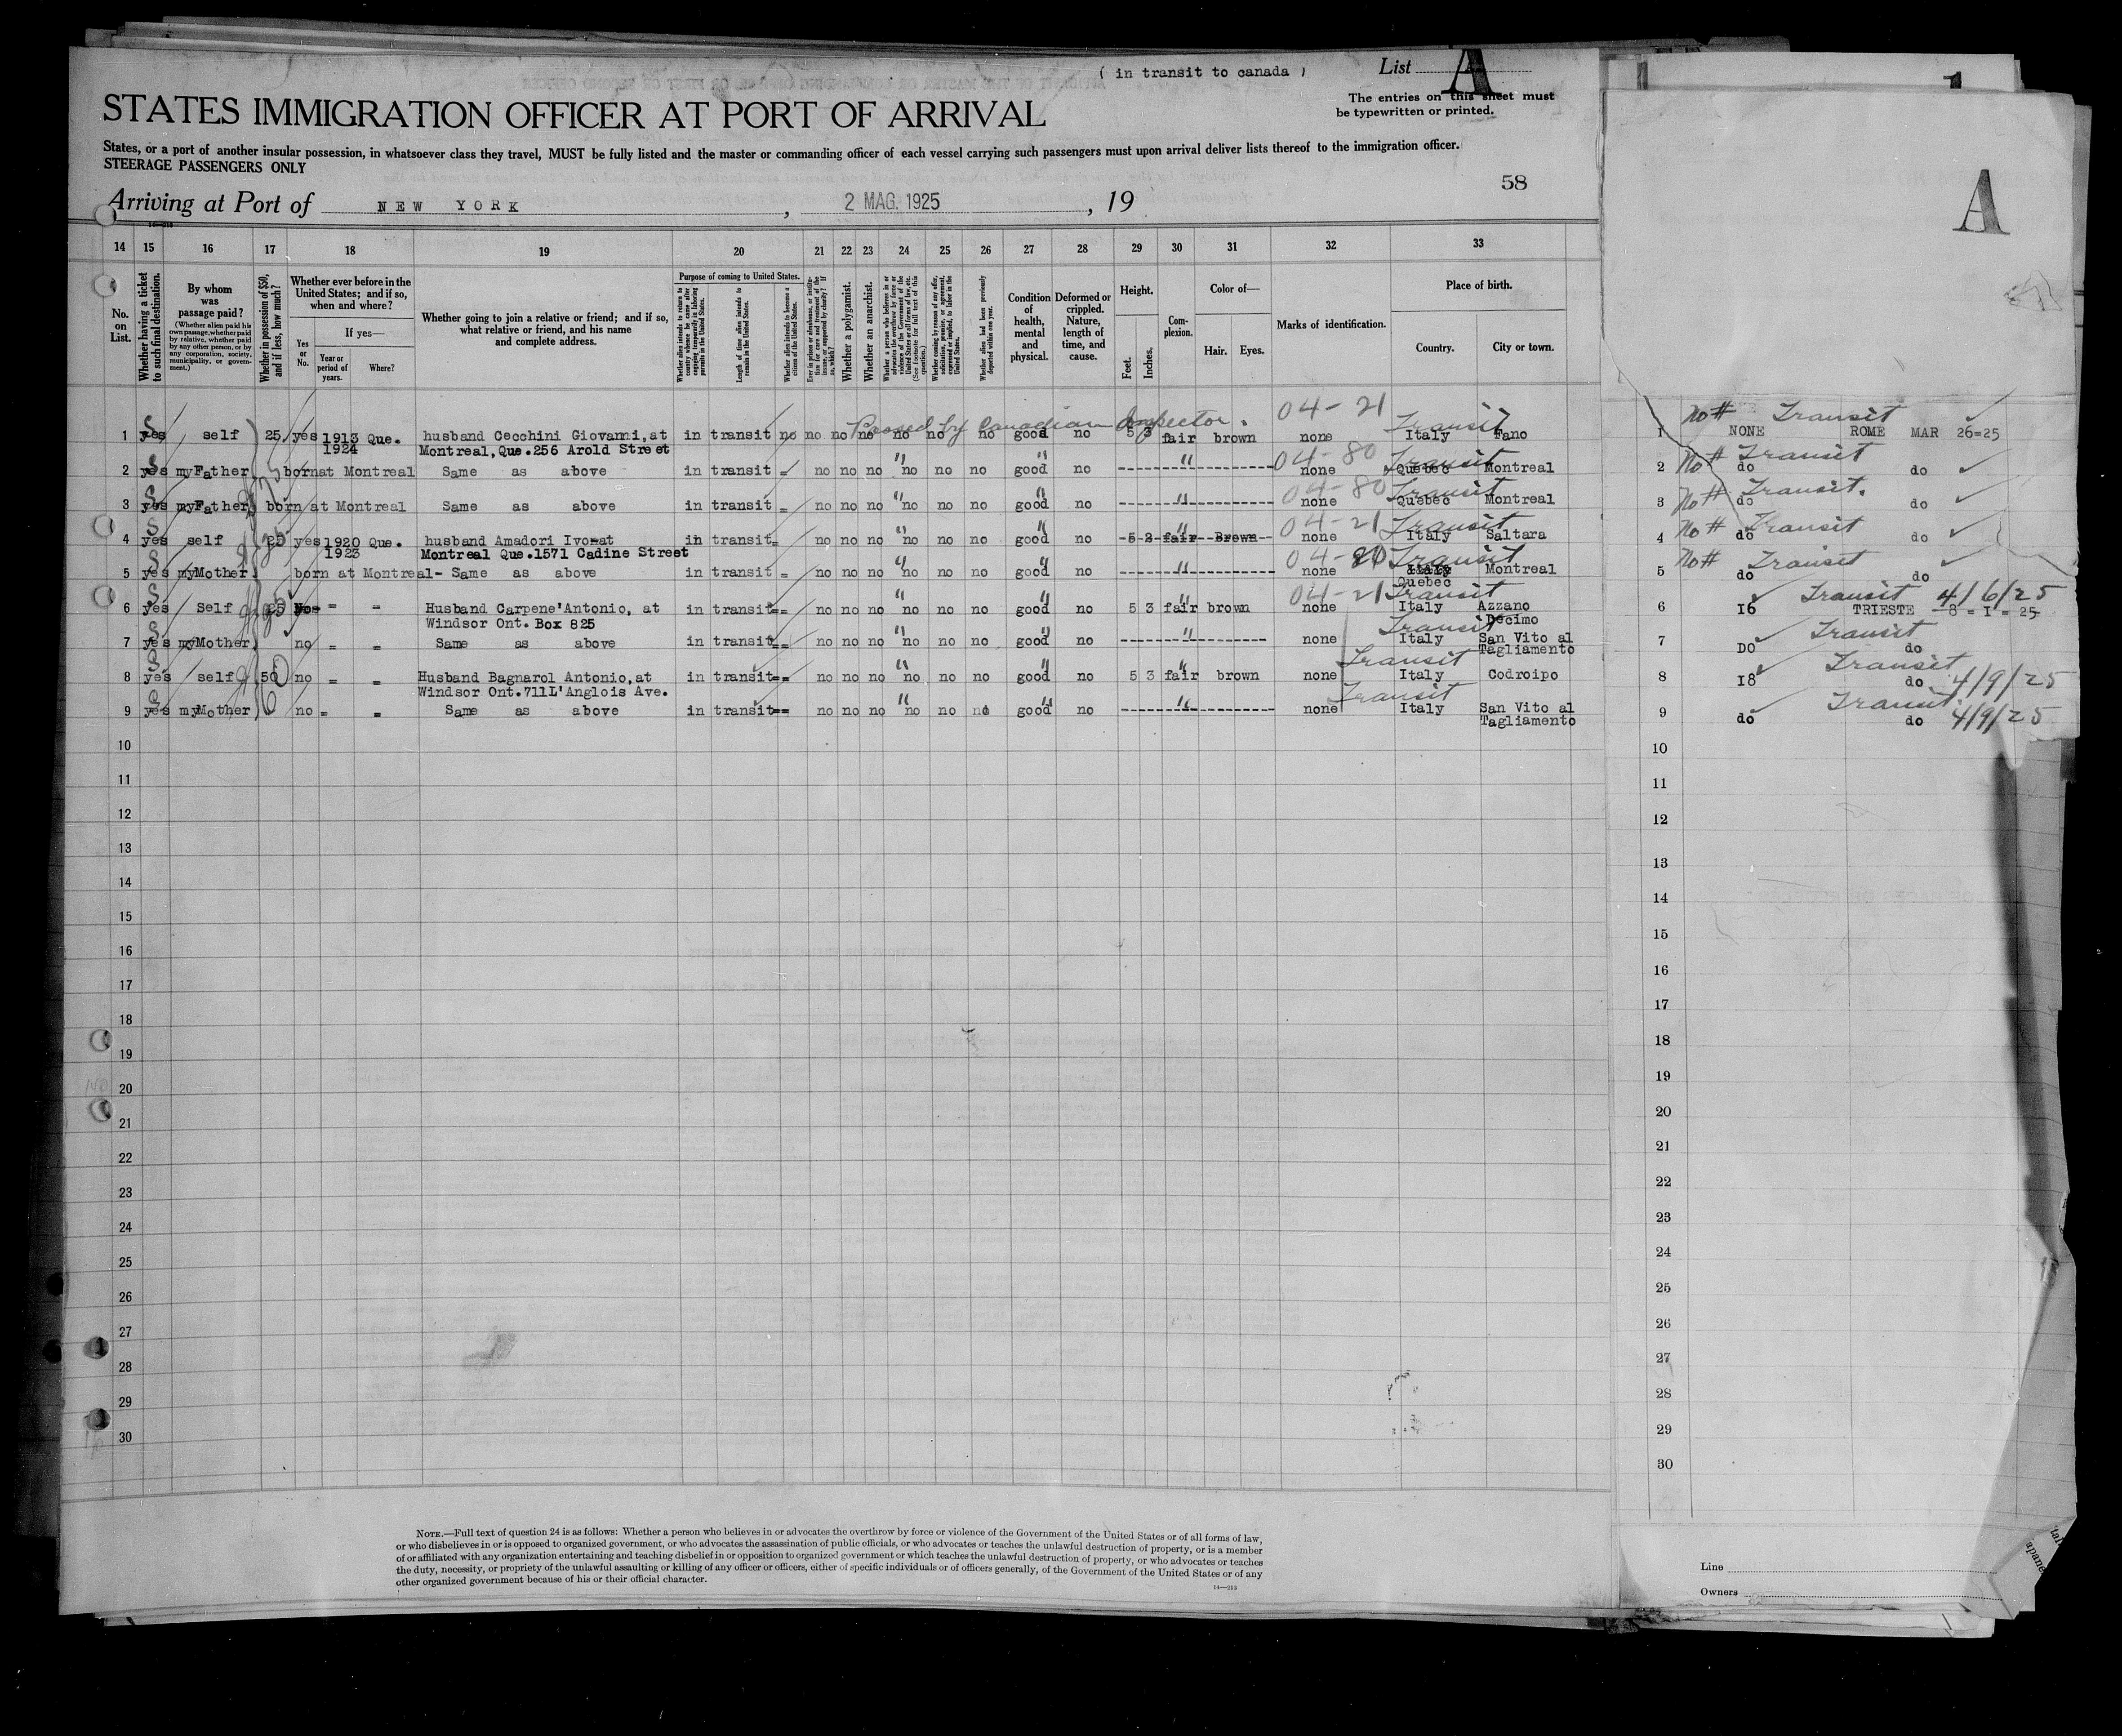 ( in transit to canada )
List A
The entries on this sheet must
be typewritten or printed.
STATES IMMIGRATION OFFICER AT PORT OF ARRIVAL
States, or a port of another insular possession, in whatsoever class they travel, MUST be fully listed and the master or commanding officer of each vessel carrying such passengers must upon arrival deliver lists thereof to the immigration officer.
STEERAGE PASSENGERS ONLY
58
Arriving at Port of NEW YORK , 2 MAG. 1925 , 19
A
14 15 16 17 18 19 20 21 22 23 24 25 26 27 28 29 30 31 32 33
No. on List.
Whether having a ticket to such final destination.
By whom was passage paid?
(Whether alien paid his own passage, whether paid by relative, whether paid by any other person, or by any corporation, society, municipality, or government.)
Whether in possession of $50, and if less, how much?
Whether ever before in the United States; and if so, when and where?
Yes or No.
If yes—
Year or period of years.
Where?
Whether going to join a relative or friend; and if so, what relative or friend, and his name and complete address.
Purpose of coming to United States.
Whether alien intends to return to country whence he came after engaging temporarily in laboring pursuits in the United States.
Length of time alien intends to remain in the United States.
Whether alien intends to become a citizen of the United States.
Whether a polygamist.
Whether an anarchist.
Condition of health, mental and physical.
Deformed or crippled. Nature, length of time, and cause.
Height.
Feet.
Inches.
Complexion.
Color of—
Hair.
Eyes.
Marks of identification.
Place of birth.
Country.
City or town.
Passed by Canadian Inspector.
04-21 Transit
1 yes self 25 yes 1913 Que. husband Cecchini Giovanni, at in transit no no no no no no no good no 5 3 fair brown none Italy Fano
1924 Montreal, Que. 256 Arold Street
04-80 Transit
2 yes myFather born at Montreal Same as above in transit = no no no no no no good no none Quebec Montreal
04-80 Transit
3 yes myFather born at Montreal Same as above in transit = no no no no no no good no none Quebec Montreal
04-21 Transit
4 yes self 25 yes 1920 Que. husband Amadori Ivo at in transit = no no no no no no good no 5 2 fair Brown none Italy Saltara
1923 Montreal Que. 1571 Cadine Street
04-80 Transit
5 yes myMother born at Montreal- Same as above in transit = no no no no no no good no none Italy Montreal
Quebec
04-21 Transit
6 yes Self 25 = = Husband Carpene'Antonio, at in transit == no no no no no no good no 5 3 fair brown none Italy Azzano
Windsor Ont. Box 825 Decimo
Transit
7 yes myMother no = = Same as above in transit == no no no no no no good no none Italy San Vito al
Tagliamento
Transit
8 yes self 50 no = = Husband Bagnarol Antonio, at in transit == no no no no no no good no 5 3 fair brown none Italy Codroipo
Windsor Ont. 711 L'Anglois Ave.
Transit
9 yes myMother no = = Same as above in transit == no no no no no no good no none Italy San Vito al
Tagliamento
10
11
12
13
14
15
16
17
18
19
20
21
22
23
24
25
26
27
28
29
30
No# Transit
1 NONE ROME MAR 26=25
No# Transit
2 do do
No# Transit.
3 do do
No# Transit
4 do do
No# Transit
5 do do
Transit 4/6/25
6 16 TRIESTE 8 = I = 25
Transit
7 DO do
Transit
8 18 do 4/9/25
Transit
9 do do 4/9/25
10
11
12
13
14
15
16
17
18
19
20
21
22
23
24
25
26
27
28
29
30
Line
Owners
NOTE.—Full text of question 24 is as follows: Whether a person who believes in or advocates the overthrow by force or violence of the Government of the United States or of all forms of law,
or who disbelieves in or is opposed to organized government, or who advocates the assassination of public officials, or who advocates or teaches the unlawful destruction of property, or is a member
of or affiliated with any organization entertaining and teaching disbelief in or opposition to organized government or which teaches the unlawful destruction of property, or who advocates or teaches
the duty, necessity, or propriety of the unlawful assaulting or killing of any officer or officers, either of specific individuals or of officers generally, of the Government of the United States or of any
other organized government because of his or their official character.
14—213